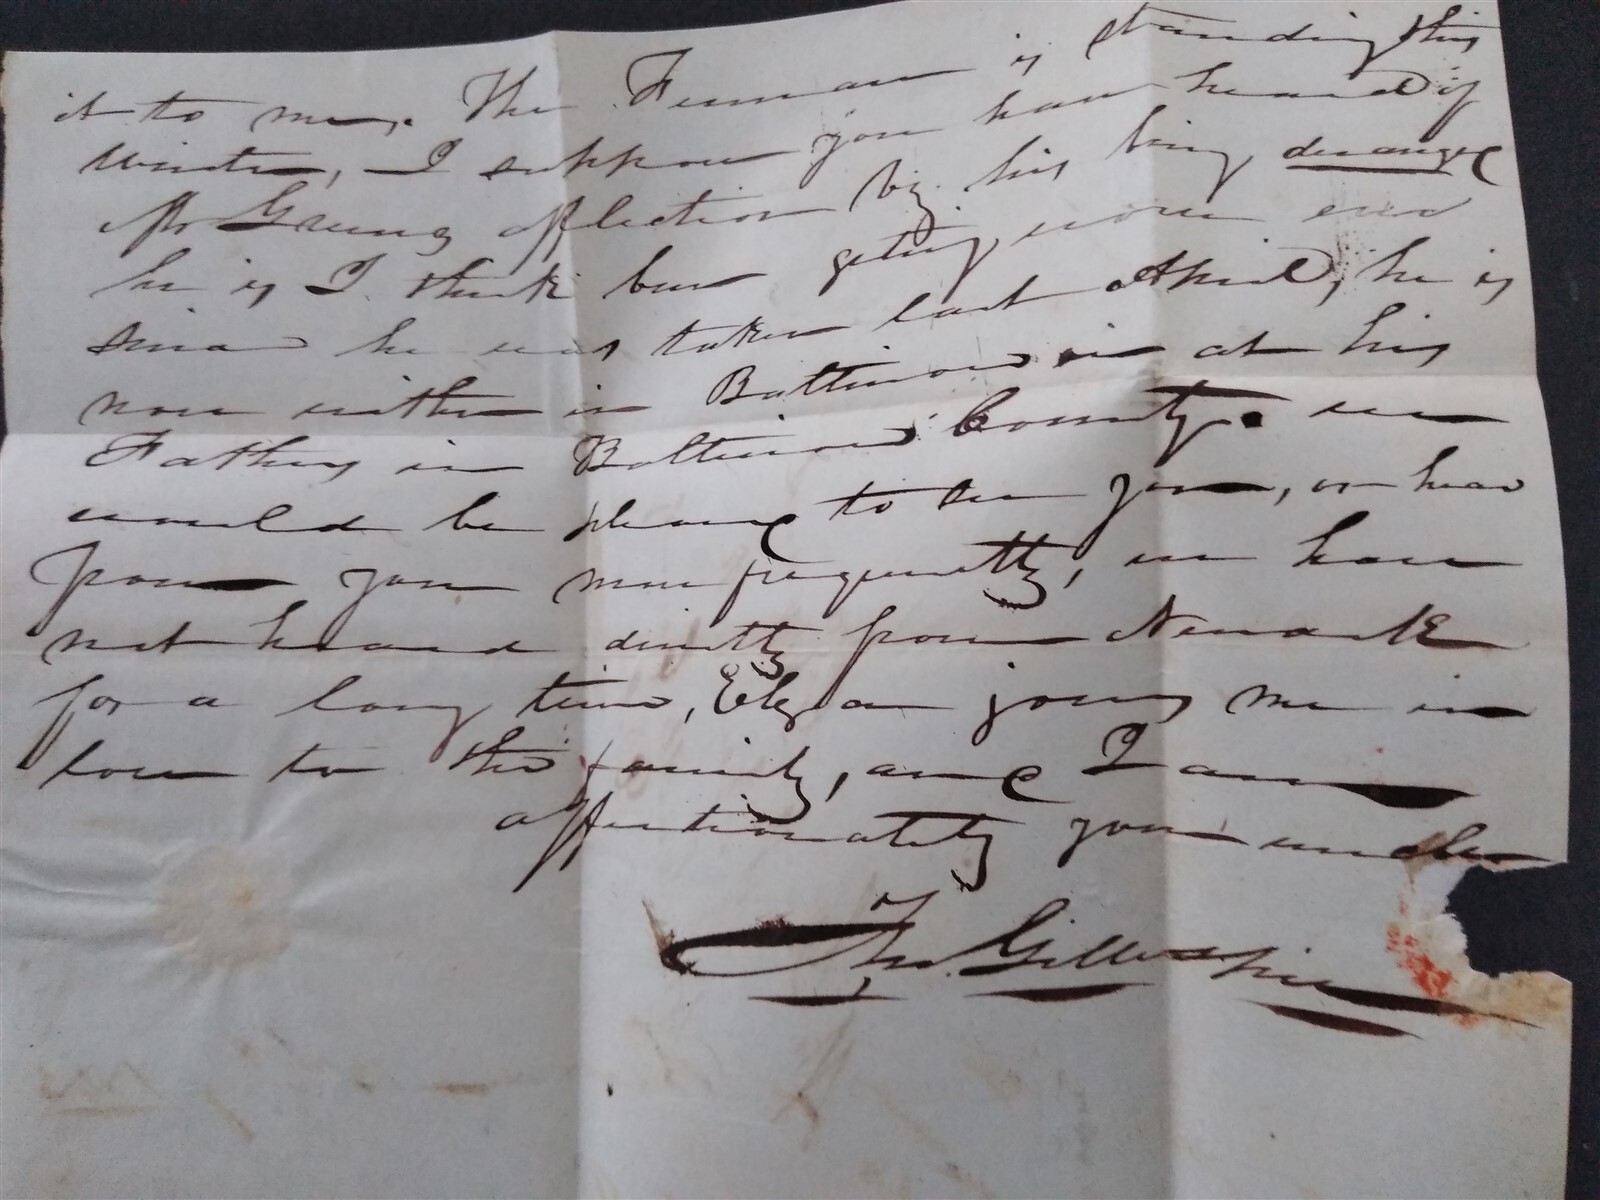 it to me, The Furnace is standing this
winter, I suppose you have heard of
Mr Greens affliction by his being deranged
he is I think been geting worse ever
since he was taken last April, he is
now either in Baltimore or at his
Fathers in Baltimore County. we
would be pleased to see you, or hear
from you more frequently, we have
not heard directly from Newark
for a long time, Elizan joins me in
love to the family, and I am
affectionately your uncle
Jno. Gillespie